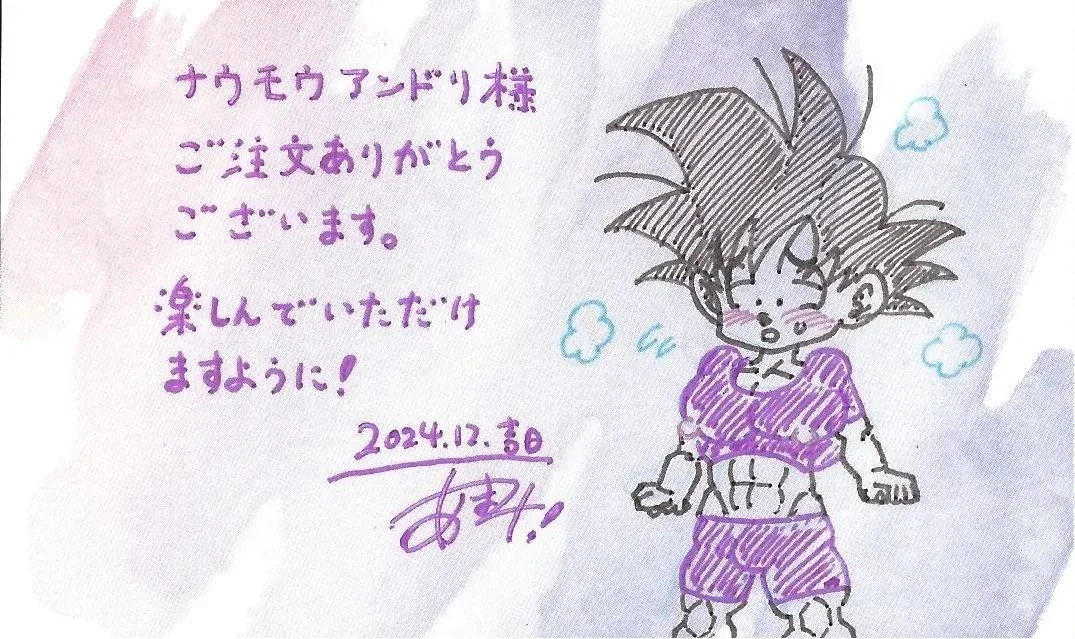 ナウモウアンドリ様
ご注文ありがとう
ございます。
楽しんでいただけ
ますように!
2024.12.吉日